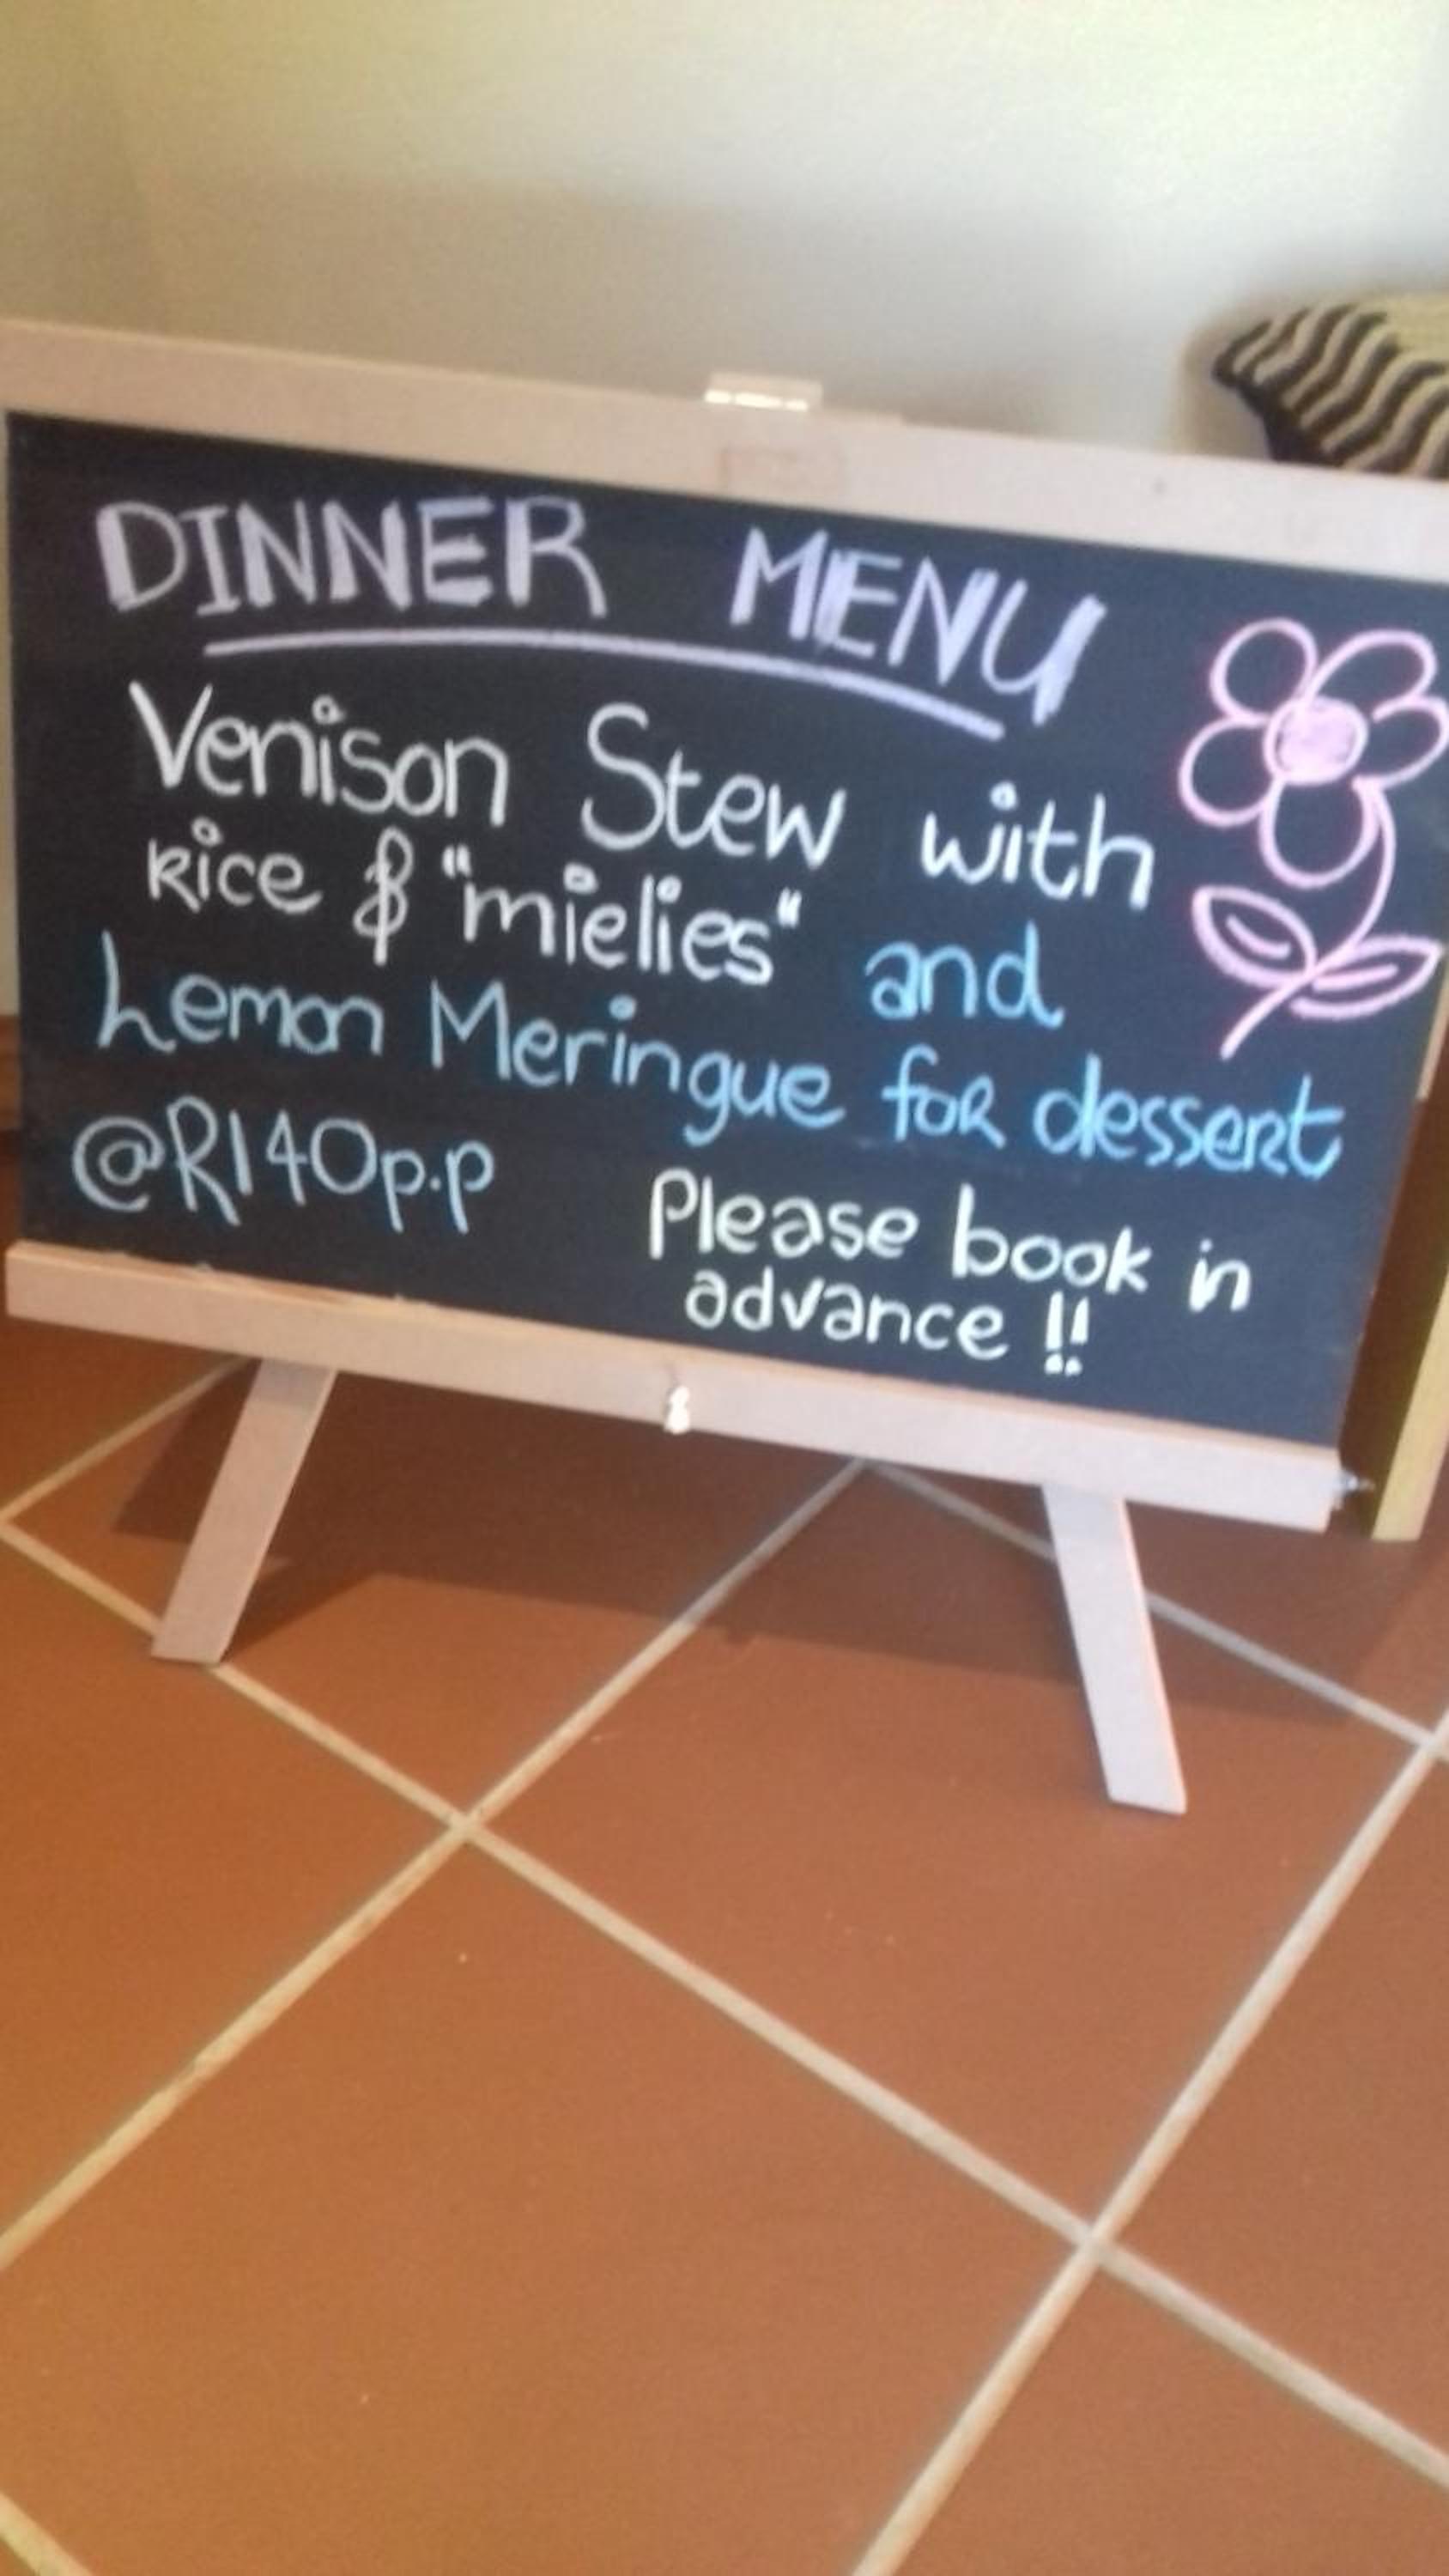 DINNER MENU
Venison Stew with
Rice & "mielies" and
Lemon Meringue for dessert
@R140p.p
Please book in
advance !!